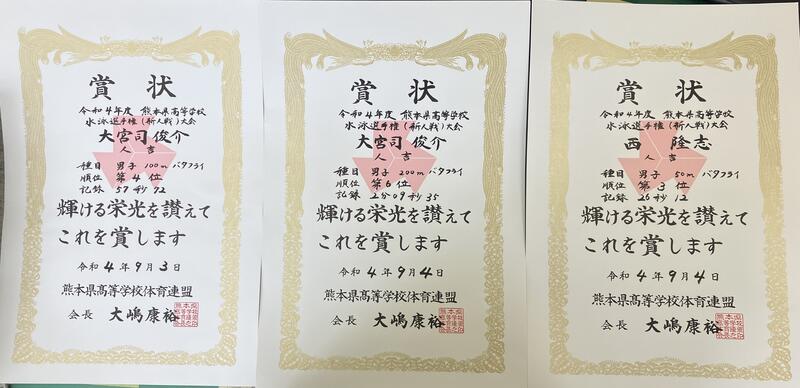 賞状
令和4年度 熊本県高等学校
水泳選手権(新人戦)大会
大宮司俊介
人吉
種目 男子 100m バタフライ
順位 第4位
記録 57秒72
輝ける栄光を讃えて
これを賞します
令和4年9月3日
熊本県高等学校体育連盟
会長 大嶋康裕
賞状
令和4年度 熊本県高等学校
水泳選手権(新人戦)大会
大宮司俊介
人吉
種目 男子 200m バタフライ
順位 第6位
記録 2分09秒35
輝ける栄光を讃えて
これを賞します
令和4年9月4日
熊本県高等学校体育連盟
会長 大嶋康裕
賞状
令和4年度 熊本県高等学校
水泳選手権(新人戦)大会
西隆志
人吉
種目 男子 50m バタフライ
順位 第3位
記録 26秒12
輝ける栄光を讃えて
これを賞します
令和4年9月4日
熊本県高等学校体育連盟
会長 大嶋康裕